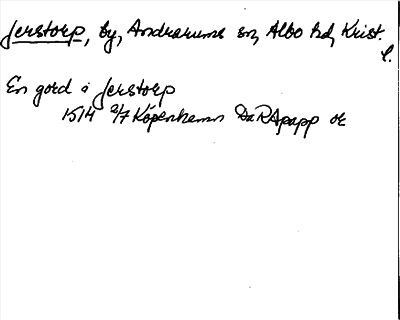 Jerstorp, by, Andrarums sn, Albo hd, Krist.
l.
En gord i Jerstorp
1514 2/7 Köpenhamn DaRApapp or